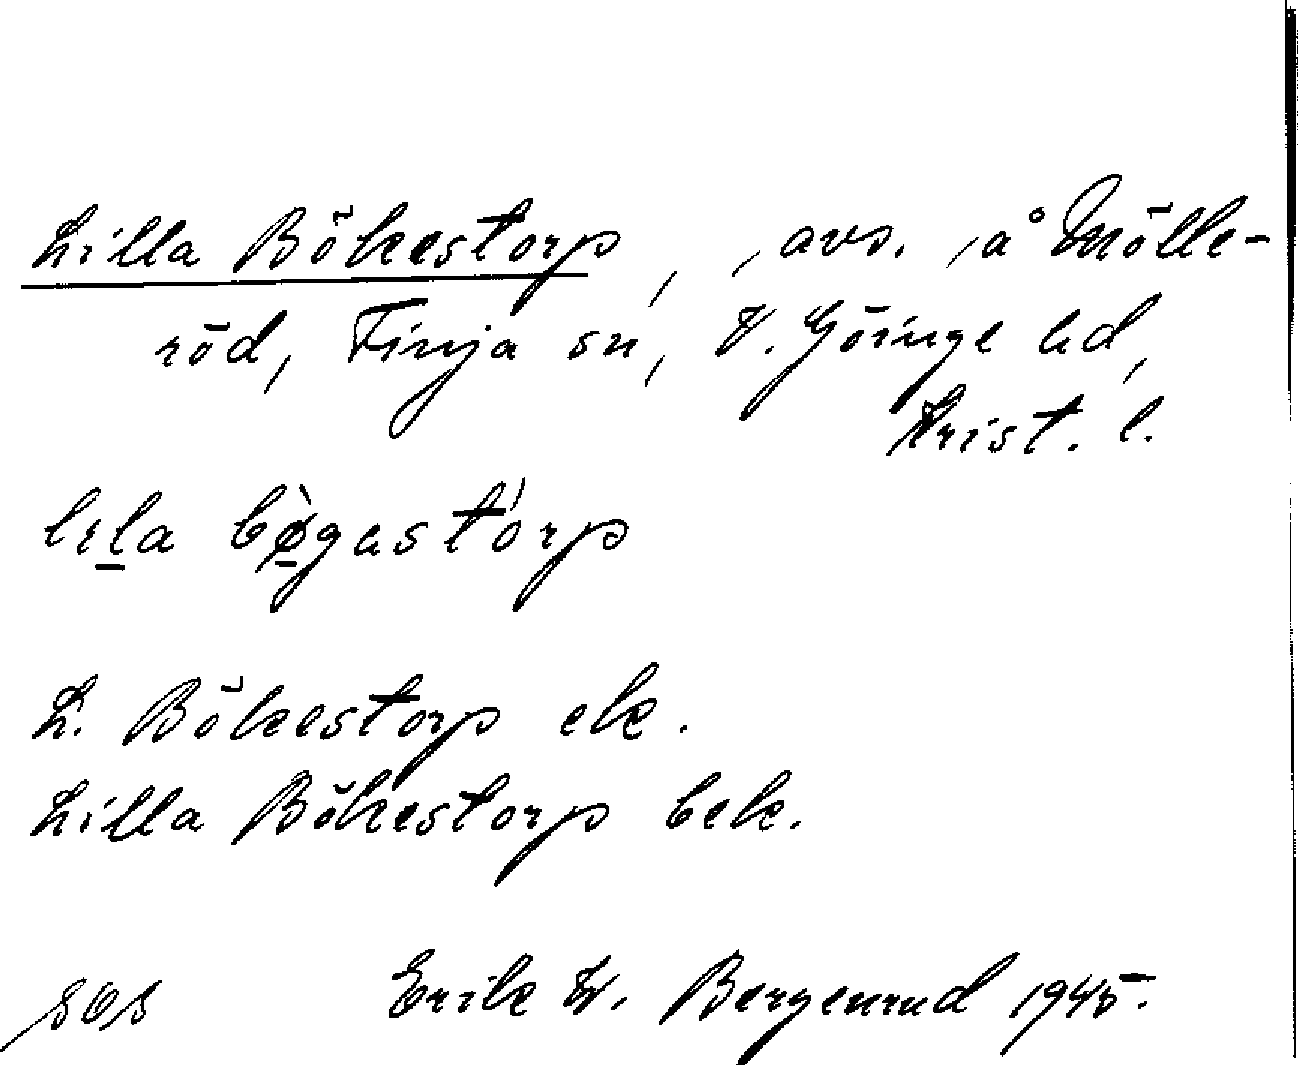 Lilla Bökestorp, , avs. , å Mölle-
röd, Finja sn, V. Göinge hd,
Krist. l.
lila bø̀gastórp
L. Bökestorp ek.
Lilla Bökestorp bek.
Erik W. Bergenrud 1945.